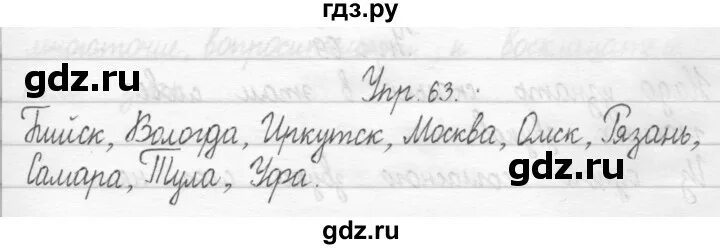 гдз.ру
gdz.ru
Упр. 63.
Бийск, Вологда, Иркутск, Москва, Омск, Рязань,
Самара, Тула, Уфа.
gdz.ru
gdz.ru